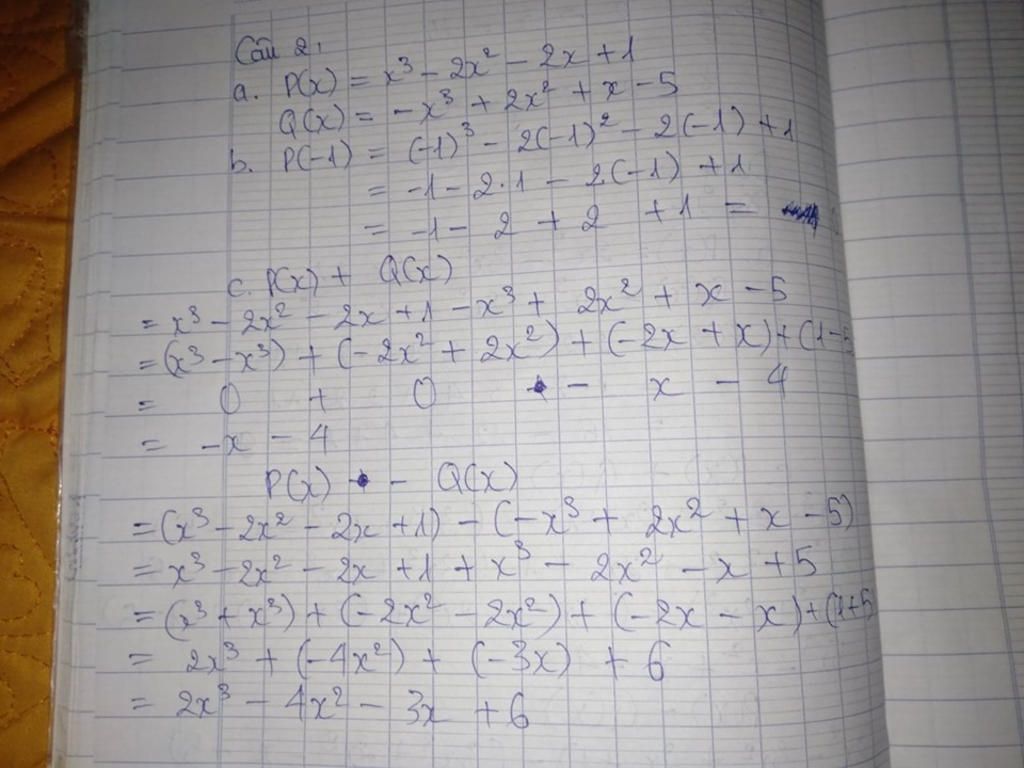 Câu 2:
a. P(x) = x³ - 2x² - 2x + 1
Q(x) = -x³ + 2x² + x - 5
b. P(-1) = (-1)³ - 2(-1)² - 2(-1) + 1
= -1 - 2.1 - 2(-1) + 1
= -1 - 2 + 2 + 1 =
c. P(x) + Q(x)
= x³ - 2x² - 2x + 1 - x³ + 2x² + x - 5
= (x³ - x³) + (-2x² + 2x²) + (-2x + x) + (1-5
= 0 + 0 - x - 4
= -x - 4
P(x) - Q(x)
= (x³ - 2x² - 2x + 1) - (-x³ + 2x² + x - 5)
= x³ - 2x² - 2x + 1 + x³ - 2x² - x + 5
= (x³ + x³) + (-2x² - 2x²) + (-2x - x) + (1+5
= 2x³ + (-4x²) + (-3x) + 6
= 2x³ - 4x² - 3x + 6